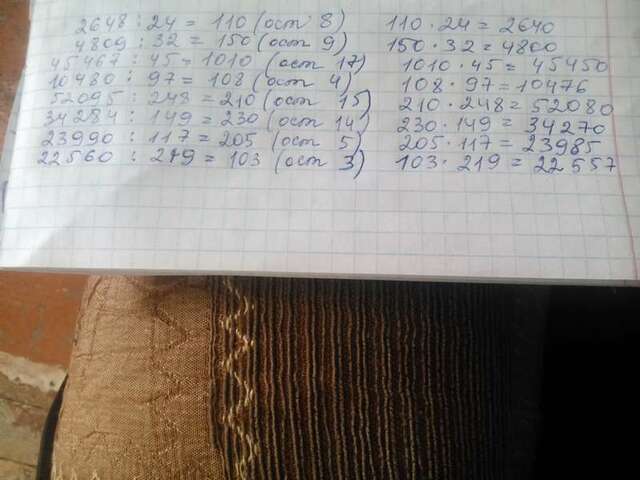 2648 : 24 = 110 (ост 8) 110 · 24 = 2640
4809 : 32 = 150 (ост 9) 150 · 32 = 4800
45467 : 45 = 1010 (ост 17) 1010 · 45 = 45450
10480 : 97 = 108 (ост 4) 108 · 97 = 10476
52095 : 248 = 210 (ост 15) 210 · 248 = 52080
34284 : 149 = 230 (ост 14) 230 · 149 = 34270
23990 : 117 = 205 (ост 5) 205 · 117 = 23985
22560 : 219 = 103 (ост 3) 103 · 219 = 22557